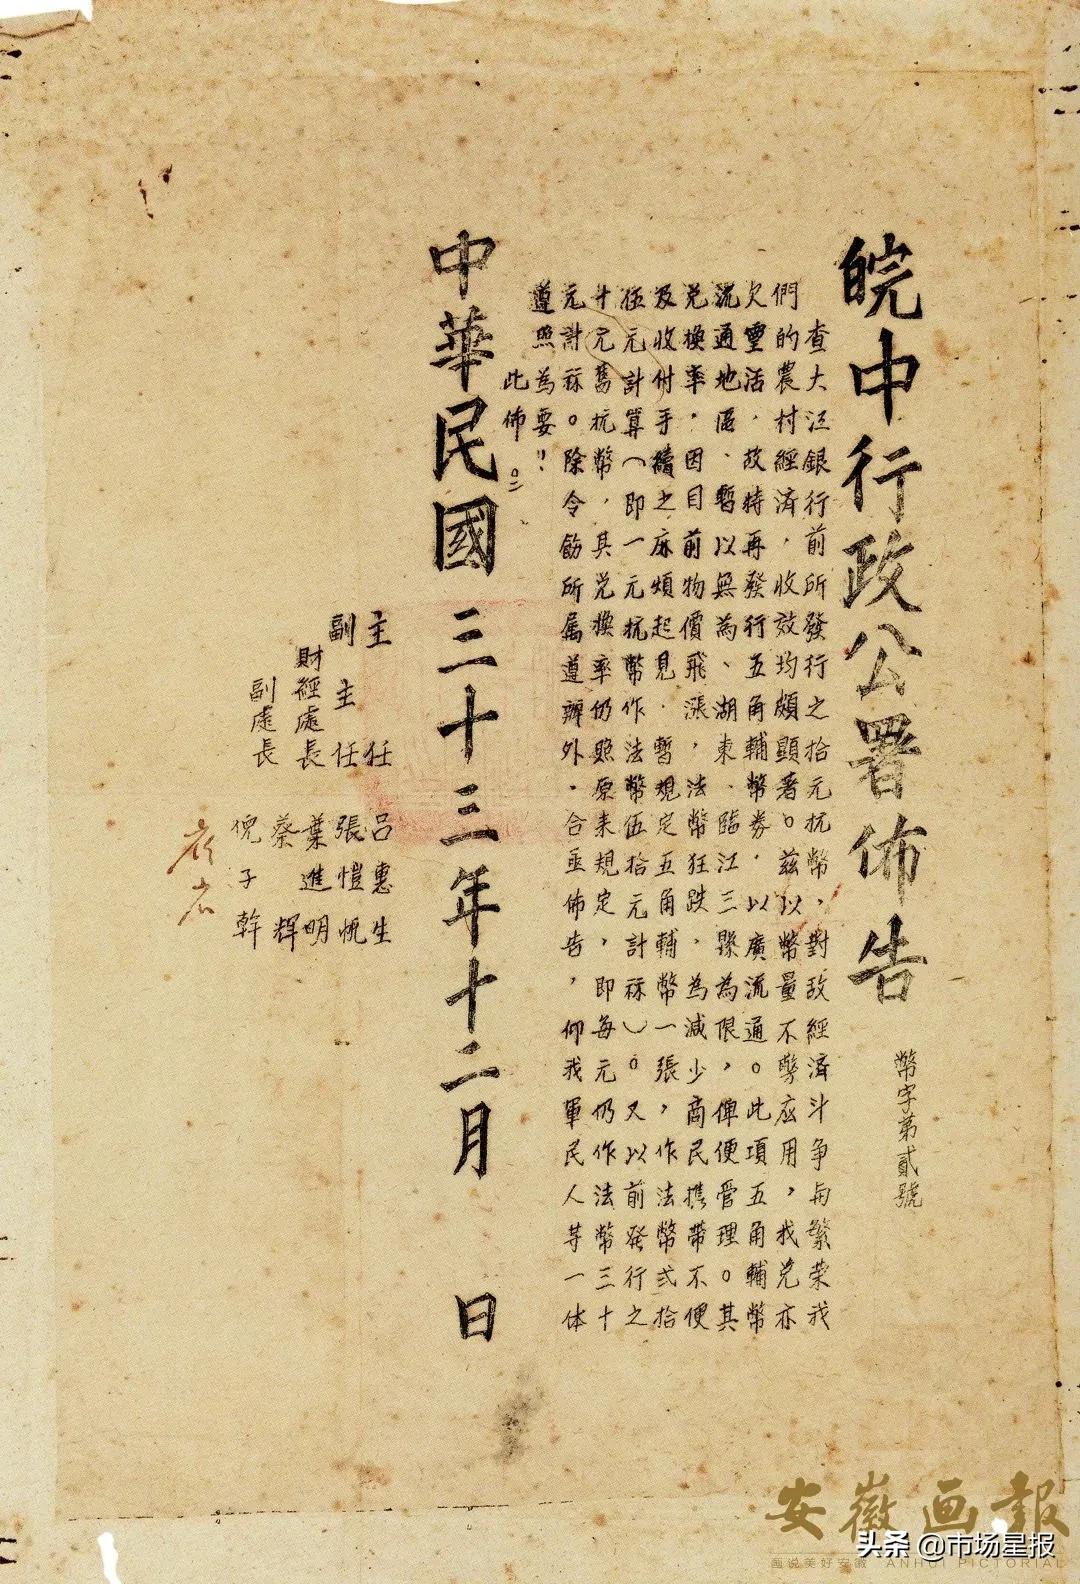 皖中行政公署佈告
幣字第貳號
查大江銀行前所發行之拾元抗幣，對敌經済斗争与繁荣我
們的農村經済，收效均頗顯著。兹以幣量不孶应用，我兑亦
欠靈活，故特再發行五角輔幣券，以廣流通。此項五角輔幣
流通地區、暫以無為、湖東、臨江三縣為限，俾便管理。其
兑換率，因目前物價飛漲，法幣狂跌，為减少商民携带不便
及收付手續之麻煩起見，暫規定五角輔幣一張，作法幣弍拾
伍元計算（即一元抗幣作法幣伍拾元計祘）。又以前発行之
十元舊抗幣，其兑換率仍照原来規定，即每元仍作法幣三十
元計祘。除令飭所属遵辦外，合亟佈告，仰我軍民人等一体
遵照為要！
此佈。
中華民國三十三年十二月 日
主任 呂惠生
副主任 張愷帆
財經處長 葉進明
副處長 蔡輝
倪子幹
安徽画報
画说美好安徽 ANHUI PICTORIAL
头条 @市场星报